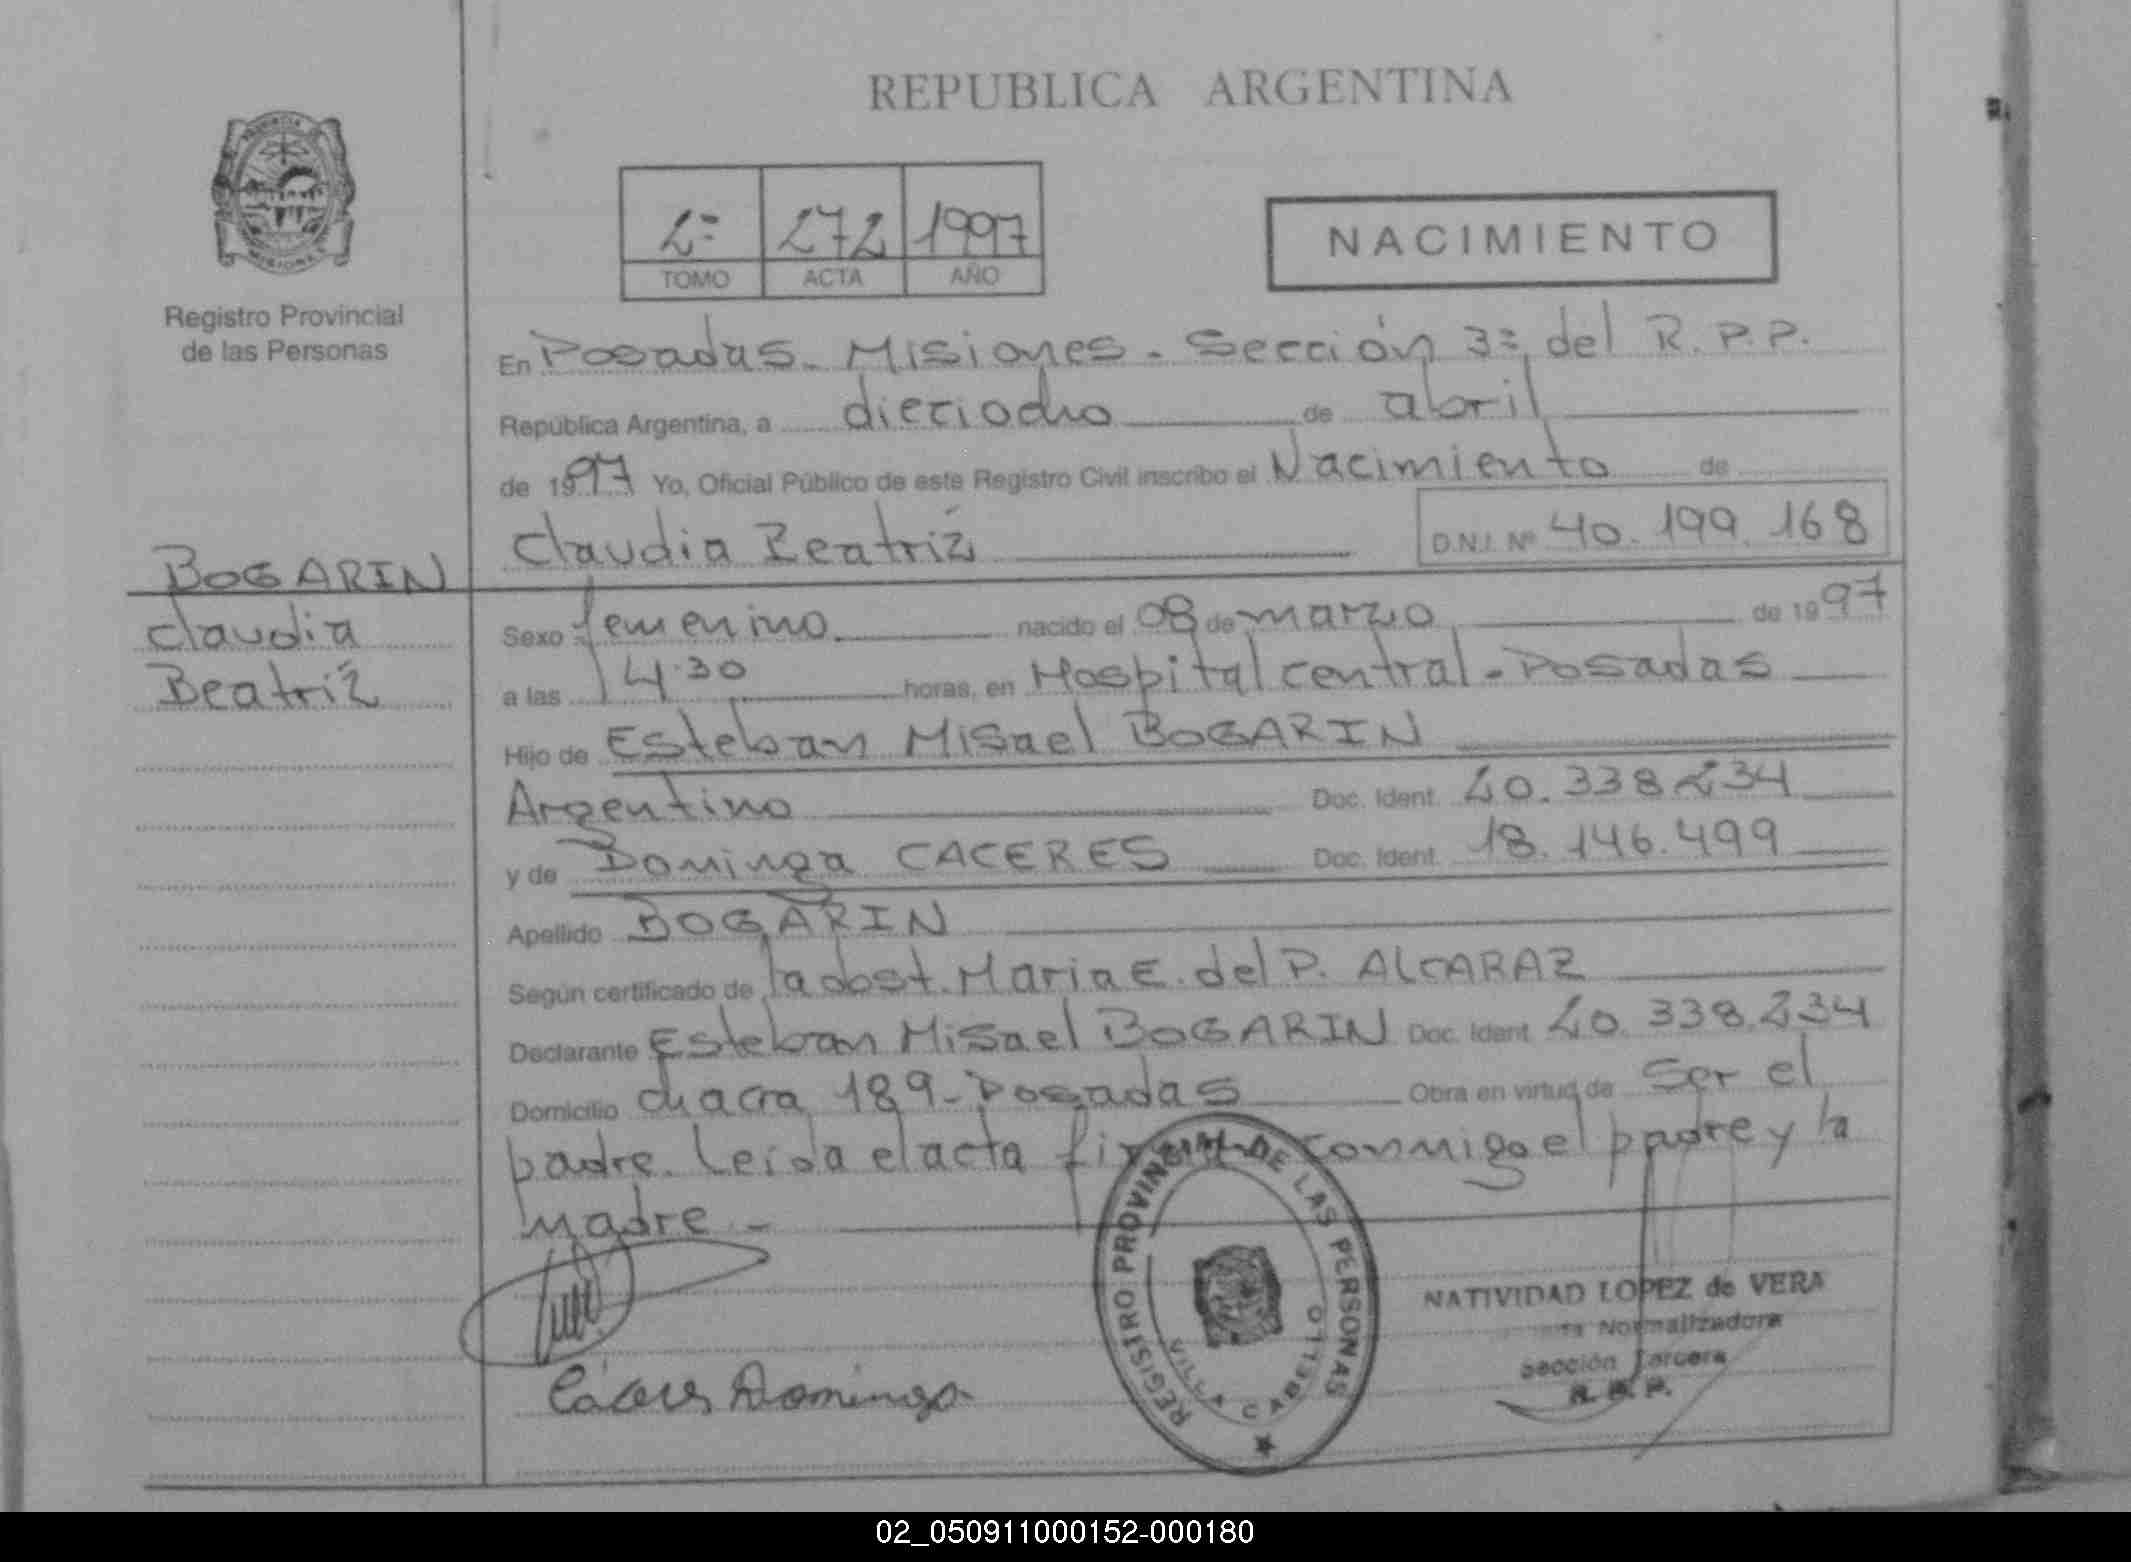 REPUBLICA ARGENTINA
2º 272 1997
TOMO ACTA AÑO
NACIMIENTO
Registro Provincial
de las Personas
En Posadas - Misiones - Sección 3ª del R.P.P.
República Argentina, a dieciocho de abril
de 1997 Yo, Oficial Público de este Registro Civil inscribo el Nacimiento de
Claudia Beatriz D.N.I. Nº 40.199.168
BOGARIN
Claudia
Beatriz
Sexo femenino nacido el 08 de marzo de 1997
a las 14.30 horas, en Hospital central - Posadas
Hijo de Esteban Misael BOGARIN
Argentino Doc. Ident. 20.338.234
y de Dominga CACERES Doc. Ident. 18.146.499
Apellido BOGARIN
Según certificado de la obst. Maria E. del P. ALCARAZ
Declarante Esteban Misael BOGARIN Doc. Ident. 20.338.234
Domicilio chacra 189 - Posadas Obra en virtud de ser el
padre. Leida el acta conmigo el padre y la
madre -
Cáceres Dominga
REGISTRO PROVINCIAL DE LAS PERSONAS
VILLA CABELLO
NATIVIDAD LOPEZ de VERA
Normalizadora
Sección Tercera
R. P. P.
02_050911000152-000180